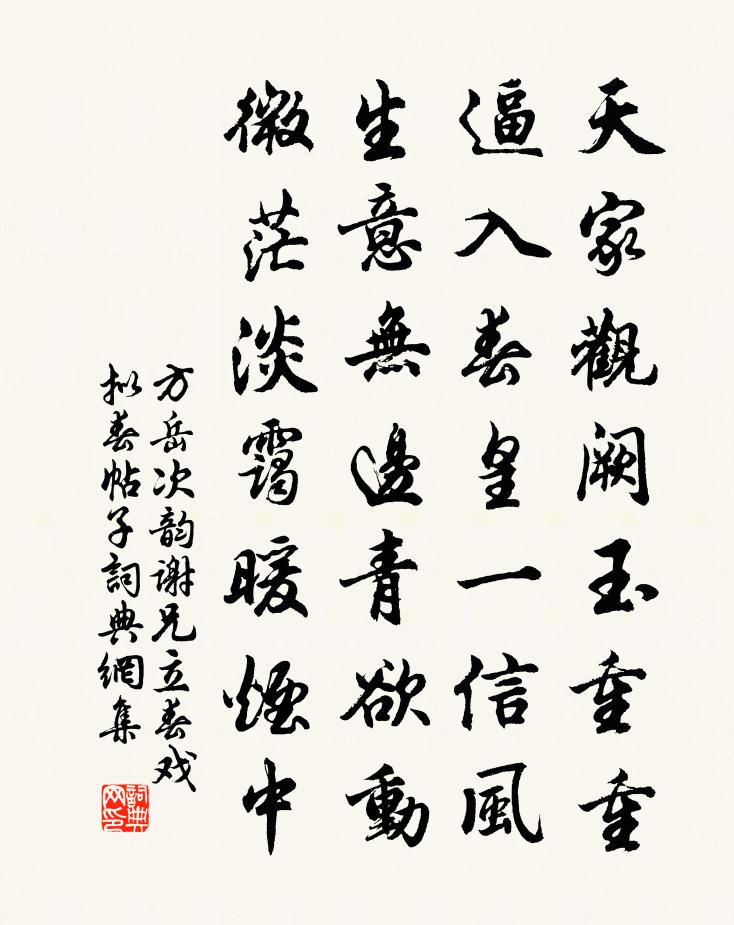 天家觀闕玉重重
逼入春皇一信風
生意無邊青欲動
微茫淡靄暖煙中
方岳次韵谢兄立春戏
拟春帖子詞典網集
詞典网印